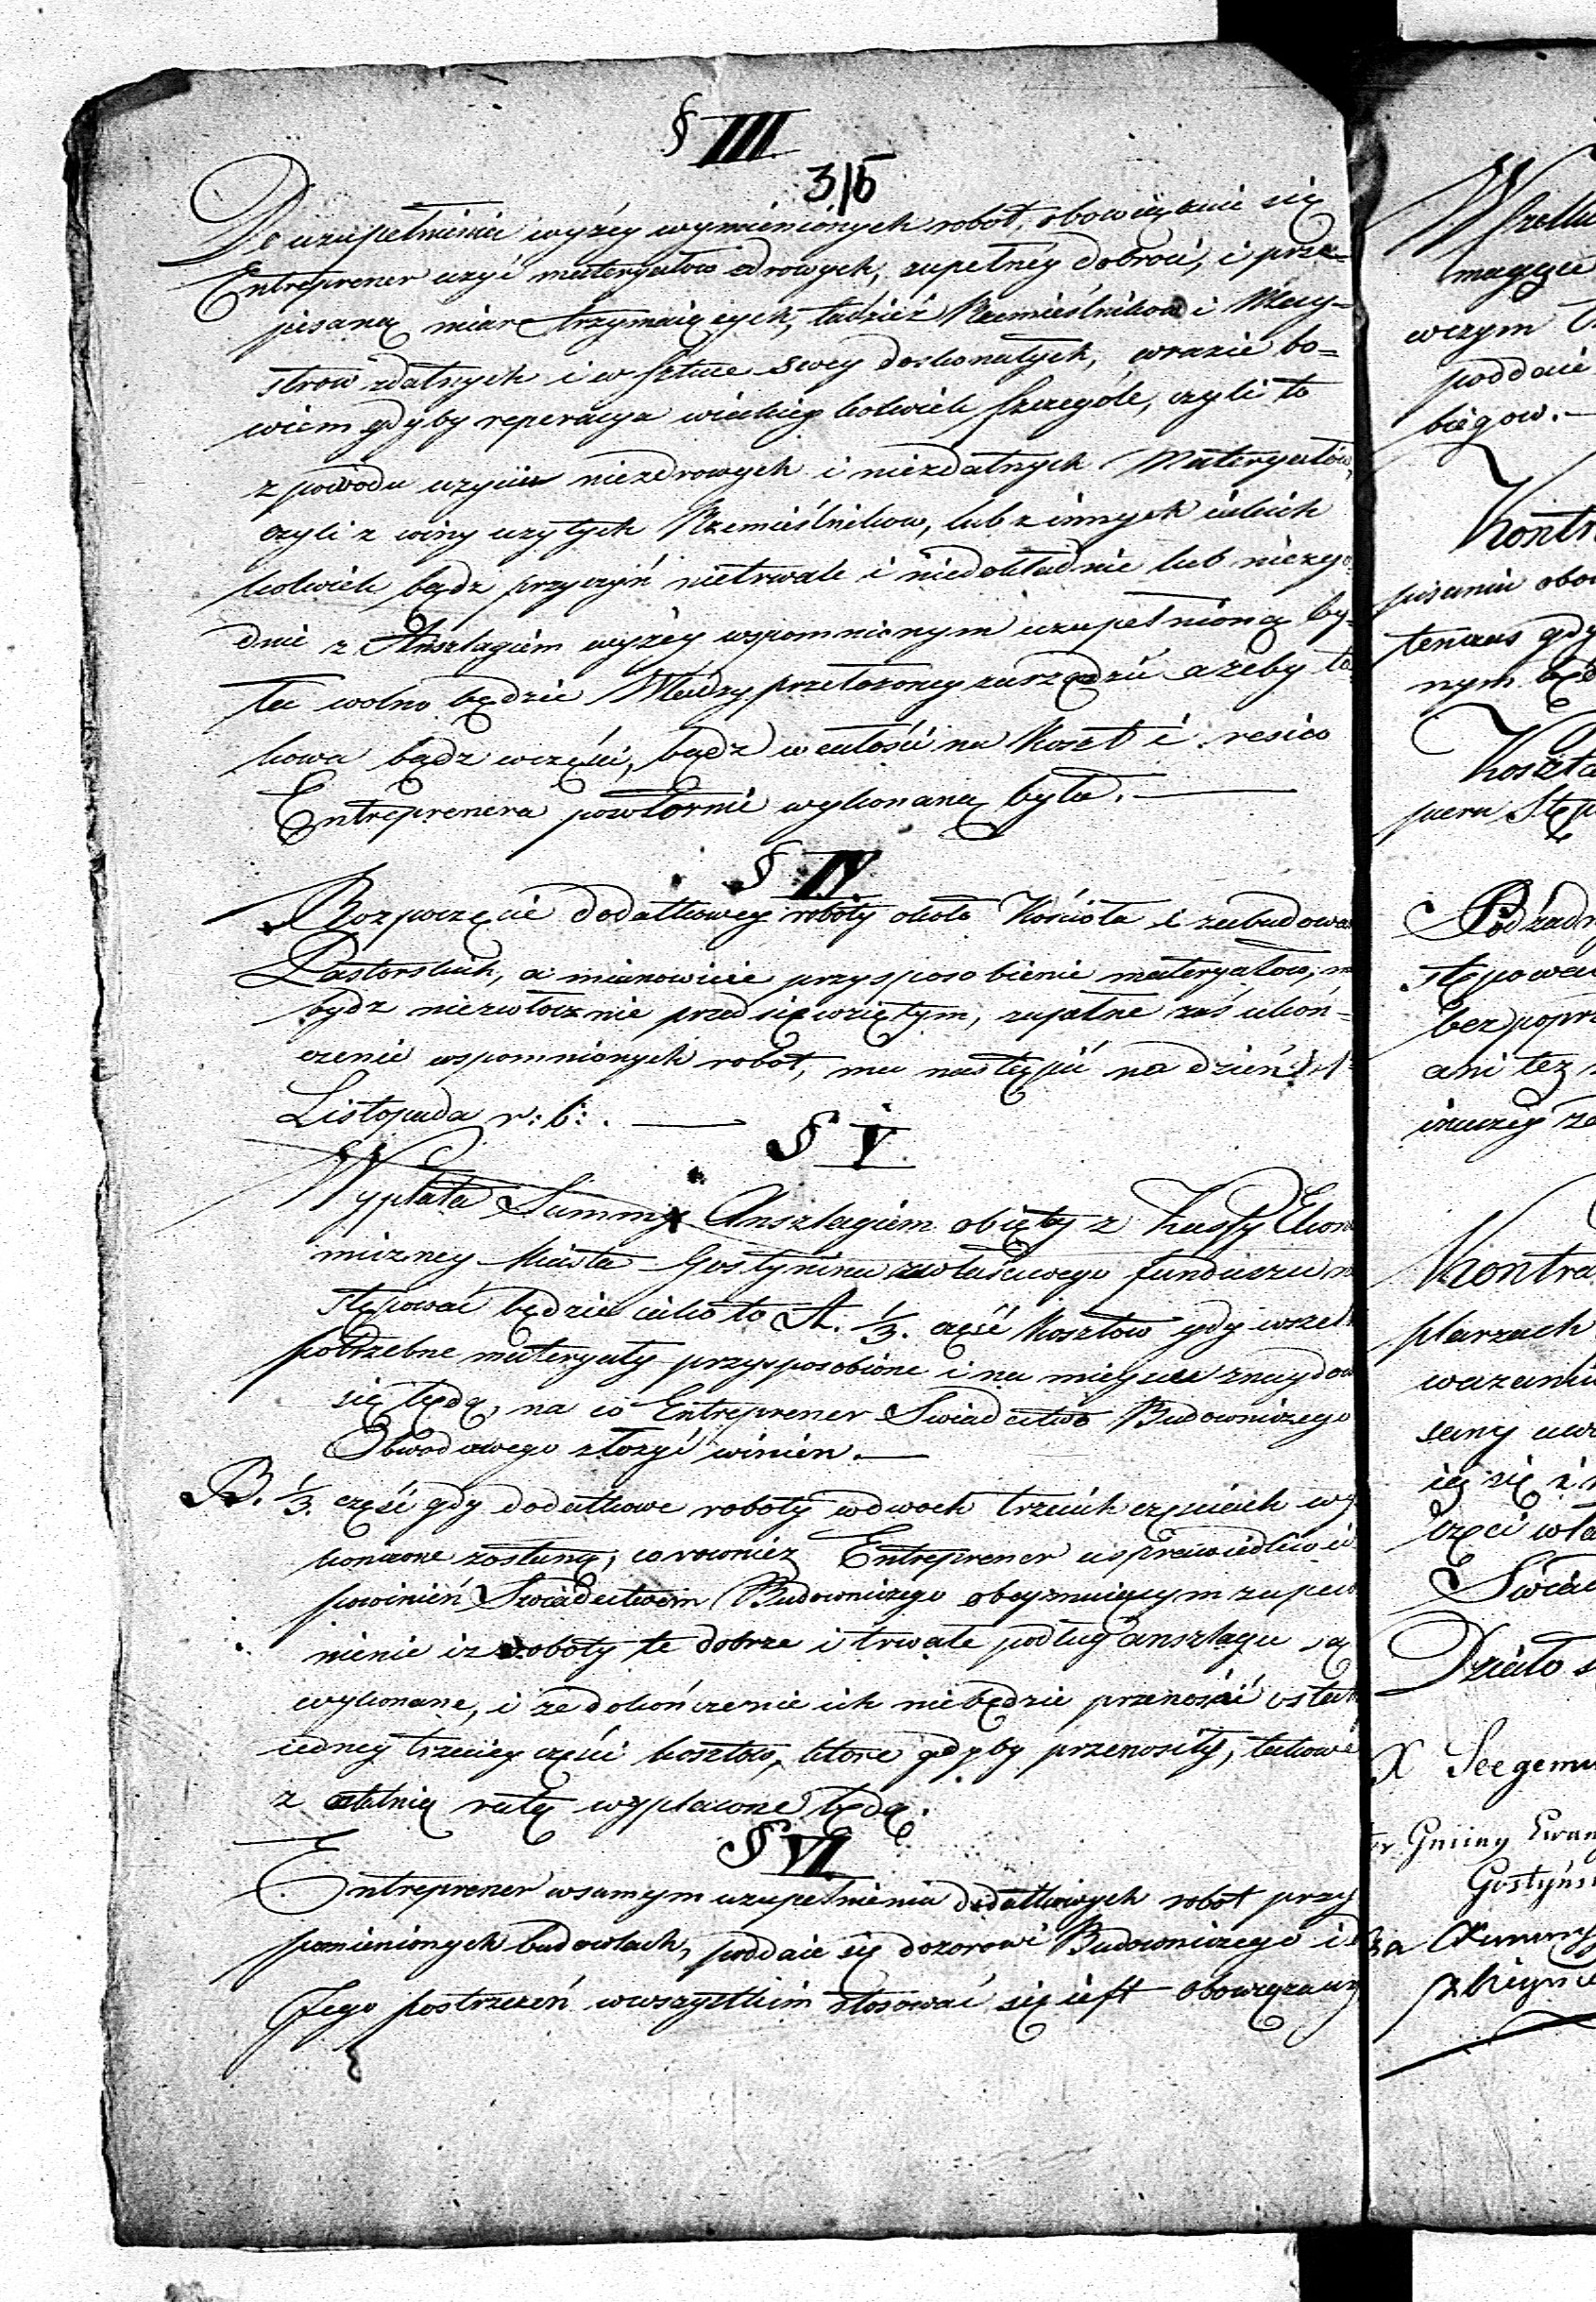 § III
315
Do uzupełnienia wyżéy wymienionych robot, obowiązuie się
Entreprener użyć materyałow zdrowych, zupełnéy dobroci, i prze=
pisaną miarę trzymaiących, tudzież Rzemieślnikow i May=
strow zdatnych i w sztuce swey doskonałych, w razie bo=
wiem gdyby reperacya w iakieykolwiek szczególe, czyli to
z powodu użycia niezdrowych i niezdatnych Materyałów,
czyli z winy użytych Rzemieślnikow, lub z innych iakich
kolwiek bądz przyczyń nietrwale i niedokładnie lub niezgo=
dnie z Anszlagiem wyżéy wspomnionym uzupełnioną by=
ła wolno będzie Władzy przełożoney zarządzić ażeby ta=
kowa bądz w części, bądz w całości na koszt i resico
Entreprenera powtórnie wykonaną była.
§ IV.
Rozpoczęcie dodatkowey roboty około Kościoła i zabudowa
Pastorskich, a mianowicie przysposobienie materyałow, m
bydz niezwłocznie przedsięwziętym, zupełne zaś ukoń=
czenie wspomnionych robot, ma nastąpić na dzień 1
Listopada r: b: .
§ V.
Wypłata Summy Anszlagiem obięty z Kassy Ekono
miczney Miasta Gostynina z właściwego funduszu n
stępować będzie iako to A. 1/3. część kosztow gdy wszel
potrzebne materyały przysposobione i na mieysce znaydow
się będą, na co Entreprener Swiadectwo Budowniczego
Obwodowego złożyć winien.
B. 1/3. część gdy dodatkowe roboty w dwoch trzecich częściach wy
konczone zostaną, co rownież Entreprener usprawiedliwić
powinień Swiadectwem Budowniczego obeymuiącym zapew
nienie iż roboty te dobrze i trwale podług anszlagu są
wykonane, i że dokończenie ich nie będzie przenosić ostat
iedney trzeciey części kosztow, ktore gdyby przenosiły, takowe
z ostatnią ratą wypłacone będą.
§ VI.
Entreprener w samym uzupełnieniu dodatkowych robot przy
pomienionych budowlach, poddaie się dozorowi Budowniczego i d
Jego postrzeżeń w wszystkim stosować się iest obowiązany
magayie
wczym
poddaie
biegow.
Kontr
pisania obo
tenczas gdy
nym będ
Koszta
pieru Stęp
Pod żadn
stępowa
bez popr
ani też
inaczey
Kontra
plarzach
ważania
czci wła
Swiad
Działo s
X Seegemu
Gminy Ewan
Gostyńs